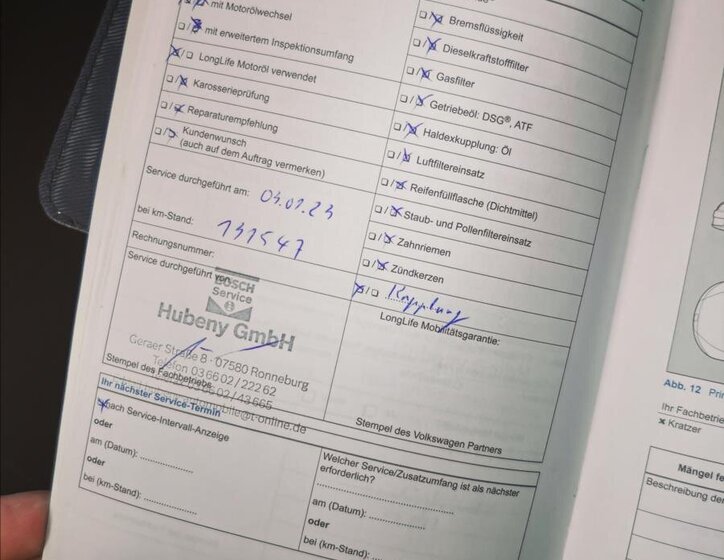 mit Motorölwechsel
mit erweitertem Inspektionsumfang
LongLife Motoröl verwendet
Karosserieprüfung
Reparaturempfehlung
Kundenwunsch
(auch auf dem Auftrag vermerken)
Service durchgeführt am:
bei km-Stand: 131547
Rechnungsnummer:
Service durchgeführt von:
BOSCH
Service
Hubeny GmbH
Geraer Straße 8 · 07580 Ronneburg
Telefon 03 66 02 / 222 62
02 / 43 665
@t-online.de
Stempel des Fachbetriebs
Ihr nächster Service-Termin
nach Service-Intervall-Anzeige
oder
am (Datum): ................
oder
bei (km-Stand): ................
Bremsflüssigkeit
Dieselkraftstofffilter
Gasfilter
Getriebeöl: DSG®, ATF
Haldexkupplung: Öl
Luftfiltereinsatz
Reifenfüllflasche (Dichtmittel)
Staub- und Pollenfiltereinsatz
Zahnriemen
Zündkerzen
Kupplung
LongLife Mobilitätsgarantie:
Stempel des Volkswagen Partners
Welcher Service/Zusatzumfang ist als nächster
erforderlich?
am (Datum): ................
oder
bei (km-Stand): ................
Abb. 12
Ihr Fachbetrie
× Kratzer
Mängel fe
Beschreibung der